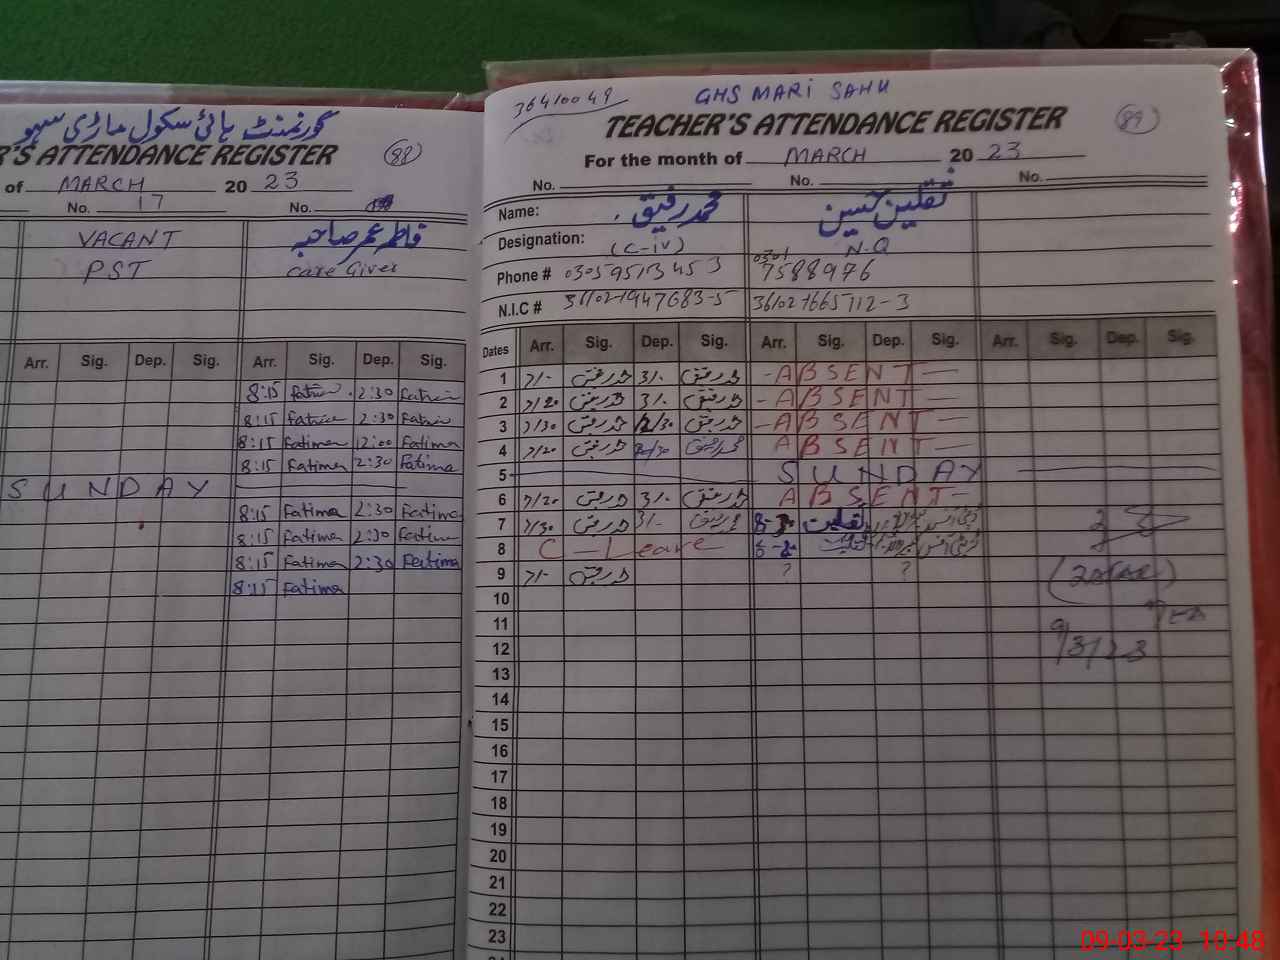 گورنمنٹ ہائی سکول ماڑی سہو
R'S ATTENDANCE REGISTER
88
of MARCH 20 23
No. 17 No.
VACANT فاطمہ عمر صاحبہ
PST Care Giver
Arr. Sig. Dep. Sig. Arr. Sig. Dep. Sig.
8:15 Fatima 2:30 Fatima
8:15 Fatima 2:30 Fatima
8:15 Fatima 12:00 Fatima
8:15 Fatima 2:30 Fatima
SUNDAY
8:15 Fatima 2:30 Fatima
8:15 Fatima 2:30 Fatima
8:15 Fatima 2:30 Fatima
8:15 Fatima
36410049 GHS MARI SAHU
TEACHER'S ATTENDANCE REGISTER
89
For the month of MARCH 20 23
No. No. No.
Name: محمد رفیق ثقلین حسین
Designation: (C-iv) N-Q
Phone # 03059513453 0301 7588976
N.I.C # 36102-1947683-5 36102-1665112-3
Dates Arr. Sig. Dep. Sig. Arr. Sig. Dep. Sig. Arr. Sig. Dep. Sig.
1 7/- 3/- - ABSENT -
2 7/20 3/- - ABSENT -
3 7/30 12/30 - ABSENT -
4 7/20 ABSENT -
5 SUNDAY
6 7/20 3/- ABSENT -
7 7/30 3/- 8-30
8 C-Leave
9 7/- ? ?
10
11
12 9/3/23
13
14
15
16
17
18
19
20
21
22
23
09-03-23 10:48